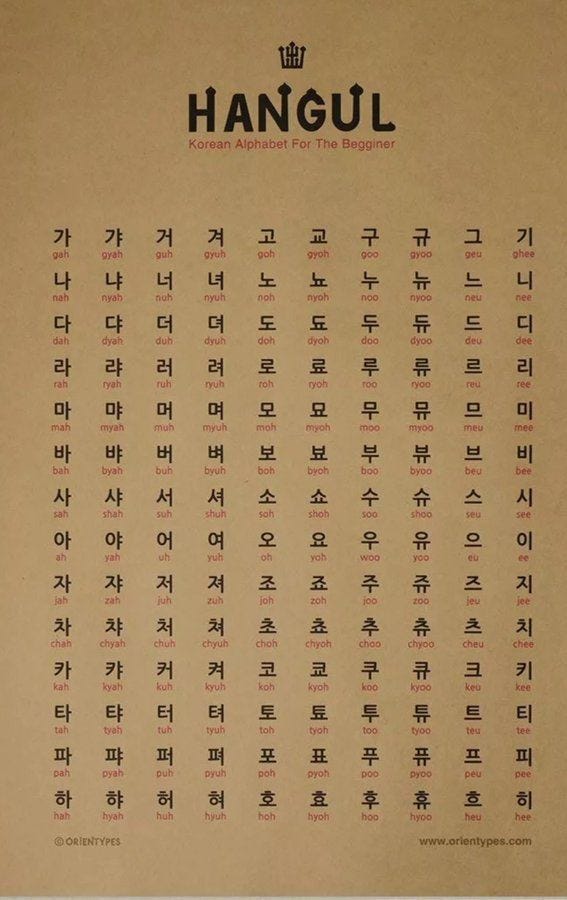 HANGUL
Korean Alphabet For The Begginer
가 갸 거 겨 고 교 구 규 그 기
gah gyah guh gyuh goh gyoh goo gyoo geu ghee
나 냐 너 녀 노 뇨 누 뉴 느 니
nah nyah nuh nyuh noh nyoh noo nyoo neu nee
다 댜 더 뎌 도 됴 두 듀 드 디
dah dyah duh dyuh doh dyoh doo dyoo deu dee
라 랴 러 려 로 료 루 류 르 리
rah ryah ruh ryuh roh ryoh roo ryoo reu ree
마 먀 머 며 모 묘 무 뮤 므 미
mah myah muh myuh moh myoh moo myoo meu mee
바 뱌 버 벼 보 뵤 부 뷰 브 비
bah byah buh byuh boh byoh boo byoo beu bee
사 샤 서 셔 소 쇼 수 슈 스 시
sah shah suh shuh soh shoh soo shoo seu see
아 야 어 여 오 요 우 유 으 이
ah yah uh yuh oh yoh woo yoo eu ee
자 쟈 저 져 조 죠 주 쥬 즈 지
jah zah juh zuh joh zoh joo zoo jeu jee
차 챠 처 쳐 초 쵸 추 츄 츠 치
chah chyah chuh chyuh choh chyoh choo chyoo cheu chee
카 캬 커 켜 코 쿄 쿠 큐 크 키
kah kyah kuh kyuh koh kyoh koo kyoo keu kee
타 탸 터 텨 토 툐 투 튜 트 티
tah tyah tuh tyuh toh tyoh too tyoo teu tee
파 퍄 퍼 펴 포 표 푸 퓨 프 피
pah pyah puh pyuh poh pyoh poo pyoo peu pee
하 햐 허 혀 호 효 후 휴 흐 히
hah hyah huh hyuh hoh hyoh hoo hyoo heu hee
© ORIENTYPES www.orientypes.com